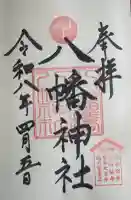 奉拝
八幡神社
令和八年四月五日